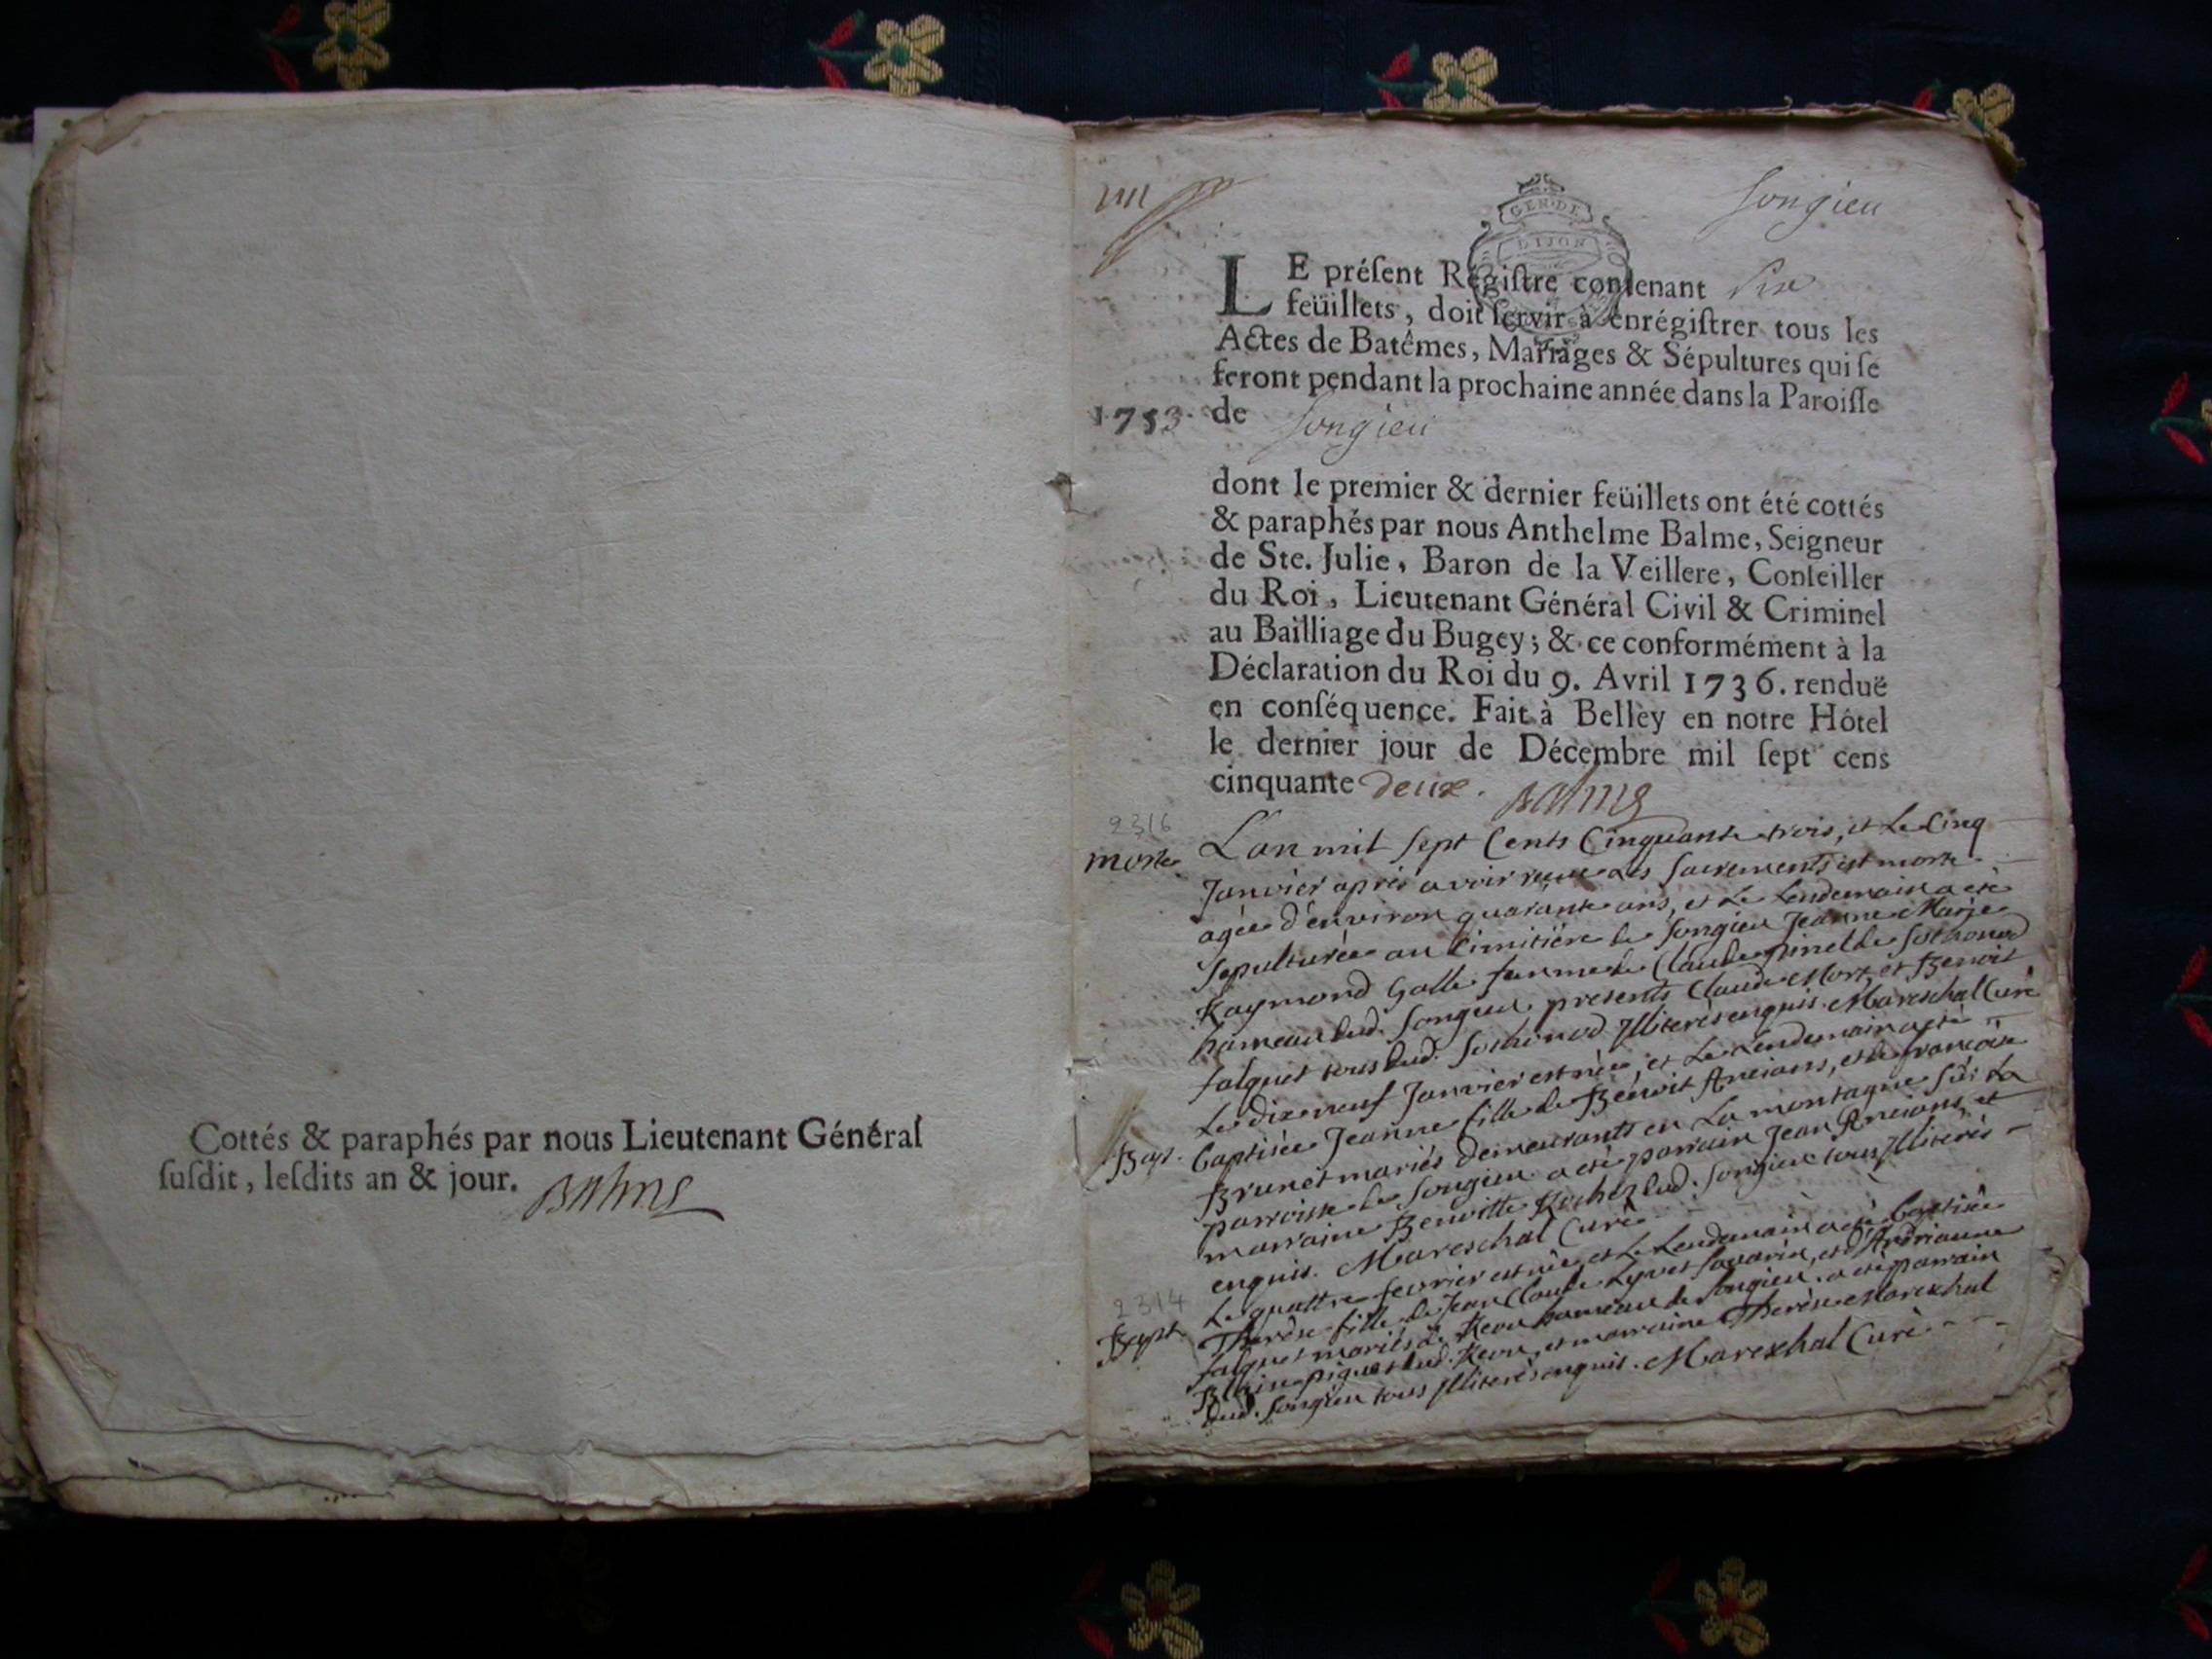 Cottés & paraphés par nous Lieutenant Général
ſuſdit, leſdits an & jour. Balme
Songieu
GEN. DE
DIJON
LE préſent Régiſtre contenant Six
feüillets, doit ſervir à enrégiſtrer tous les
Actes de Batêmes, Mariages & Sépultures qui ſe
feront pendant la prochaine année dans la Paroiſſe
1753. de Songieu
dont le premier & dernier feüillets ont été cottés
& paraphés par nous Anthelme Balme, Seigneur
de Ste. Julie, Baron de la Veillere, Conſeiller
du Roi, Lieutenant Général Civil & Criminel
au Bailliage du Bugey; & ce conformément à la
Déclaration du Roi du 9. Avril 1736. renduë
en conſéquence. Fait à Belley en notre Hôtel
le dernier jour de Décembre mil ſept cens
cinquante deux. Balme
2316
morte
L'an mil sept Cents Cinquante trois, et Le Cinq
Janvier après avoir reçue Les Sacrements est morte
agée d'environ quarante ans, et Le Lendemain a eté
Sepulturée au Cimitière de Songieu Jeanne Marie
Raymond Galle femme de Claude pinel de Sothonod
hameau dud. Songieu presents Claude Mort, et Benoit
falquet tous dud. Sothonod Illiterès enquis. Mareschal Curé
Bapt.
Le dix neuf Janvier est née, et Le Lendemain a eté
Baptisée Jeanne fille de Benoit Ancians, et de françoise
Brunet mariés demeurants en La montagne sus La
parroisse de Songieu a eté parrain Jean Ancians, et
marraine Benoitte Rochez dud. Songieu tous Illiterès
enquis. Mareschal Curé
2314
Bapt.
Le quattre fevrier est née, et Le Lendemain a eté Baptisée
Therèse fille de Jean Claude Lyvet Savarin, et d'Andrianne
falquet mariés de hameau de Songieu. a eté parrain
piquet dud. et marraine Therèse Mareschal
dud. Songieu tous Illiterès enquis. Mareschal Curé